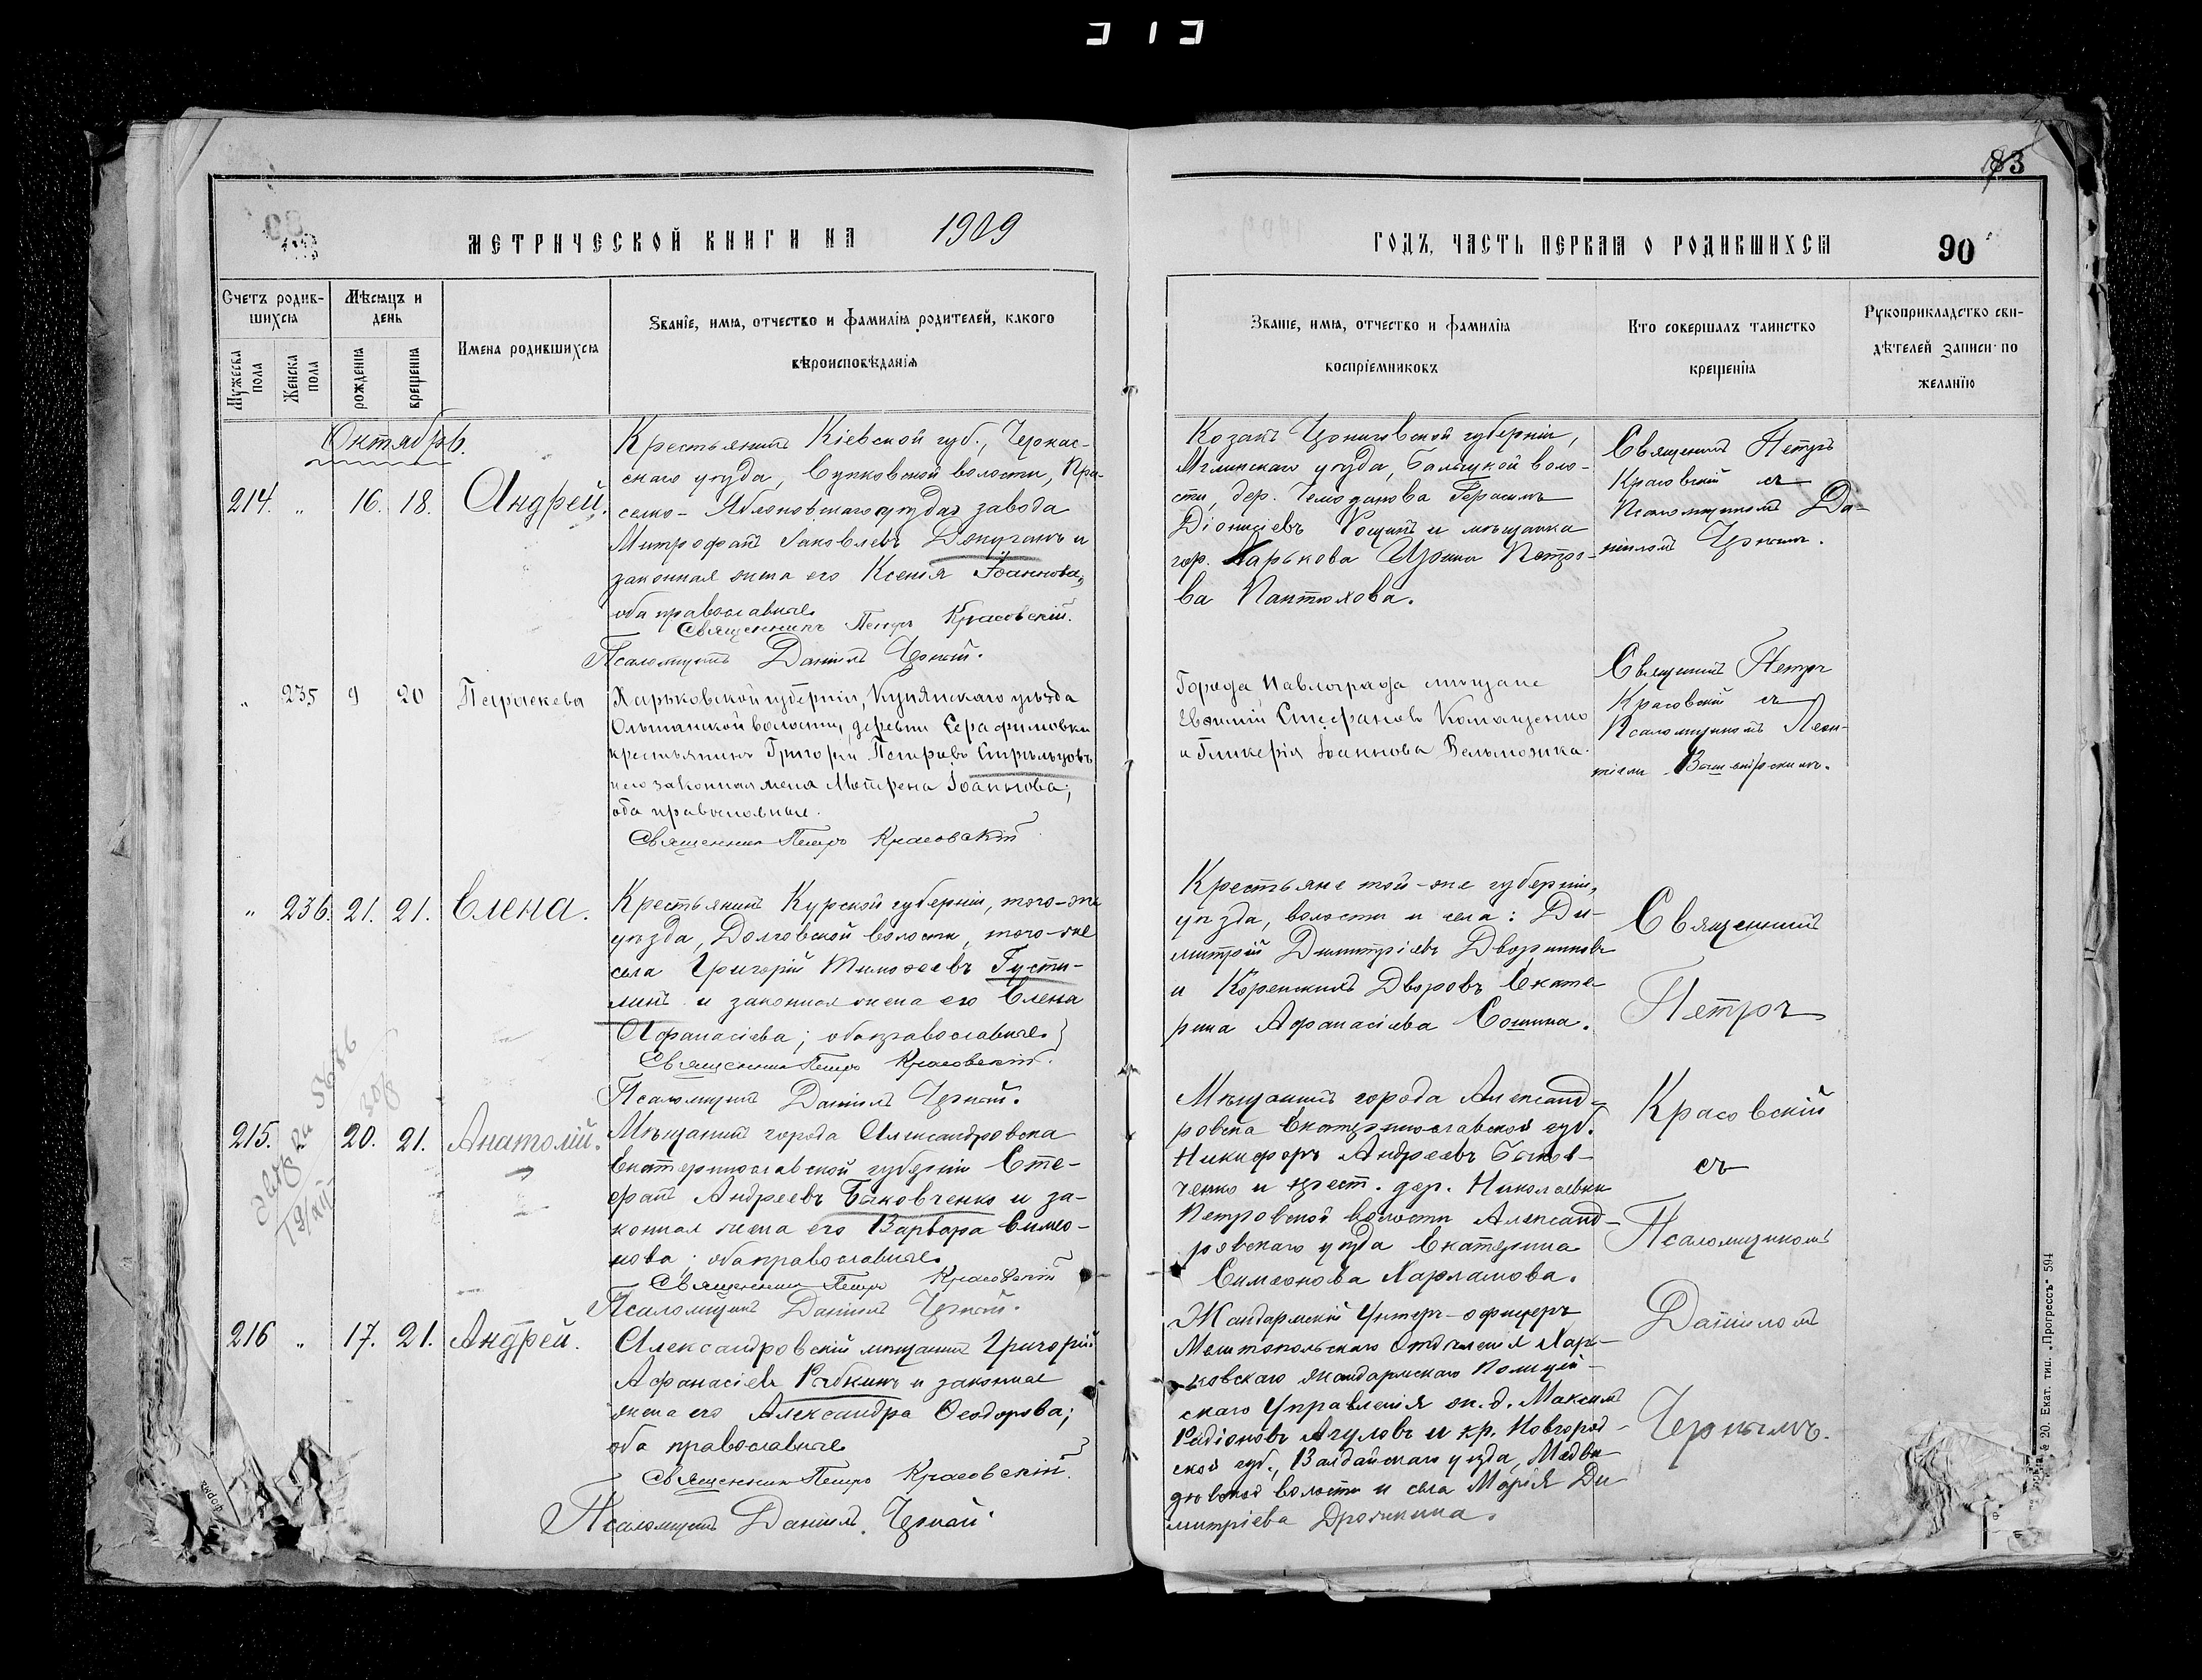 МЕТРИЧЕСКОЙ КНИГИ НА 1909
Счетъ родившихся
Мѣсяцъ и день
Имена родившихся
Званіе, имя, отчество и фамилія родителей, какого вѣроисповѣданія
Мужеска пола
Женска пола
рожденія
крещенія
Октябрь.
214. „ 16. 18. Андрей.
Крестьянинъ Кіевской губ., Черкас-
скаго уѣзда,
волости,
Яблоновскаго завода
Митрофанъ Іаковлевъ и
законная жена его Ксенія Іоаннова,
оба православные
Священникъ Петръ Красовскій.
Псаломщикъ Даніилъ Черный.
„ 235 9 20 Параскева
Харьковской губерніи, Купянскаго уѣзда
Ольшанской волости, деревни Серафимовки
крестьянинъ Григорій Петровъ Стрѣльцовъ
и его законная жена Матрена Іоаннова;
оба православные.
Священникъ Петръ Красовскій
„ 236. 21. 21. Елена.
Крестьянинъ Курской губерніи, того-же
уѣзда, Долговской волости, того-же
села Григорій Тимоѳеевъ Густи-
линъ и законная жена его Елена
Афанасіева; оба православные
Священникъ Петръ Красовскій.
Псаломщикъ Даніилъ Черный.
215. 20. 21. Анатолій.
Мѣщанинъ города Александровска
Екатеринославской губерніи Сте-
фанъ Андреевъ Быковченко и за-
конная жена его Варвара Симео-
нова; оба православные
Священникъ Петръ Красовскій
Псаломщикъ Даніилъ Черный.
216 „ 17. 21. Андрей.
Александровскій мѣщанинъ Григорій
Афанасіевъ Рябкинъ и законная
жена его Александра Ѳеодорова;
оба православные
Священникъ Петръ Красовскій.
Псаломщикъ Даніилъ Черный
ГОДЪ, ЧАСТЬ ПЕРВАЯ О РОДИВШИХСЯ
90
83
Званіе, имя, отчество и фамилія воспріемниковъ
Кто совершалъ таинство крещенія
Рукоприкладство свидѣтелей записи по желанію
Козакъ Черниговской губерніи,
Мглинскаго уѣзда, волости,
дер. Чемоданова Герасимъ
Діонисіевъ Рощинъ и мѣщанка
гор. Харькова Ирина Петро-
ва Пантюхова.
Священникъ Петръ
Красовскій съ
Псаломщикомъ Да-
ніиломъ Чернымъ.
Города Павлограда мѣщане
Евѳимій Стефановъ Комащенко
и Гликерія Іоаннова Вельможка.
Священникъ Петръ
Красовскій съ
Псаломщикомъ Леон-
тіемъ
Крестьяне той-же губерніи,
уѣзда, волости и села: Ди-
митрій Димитріевъ Дворниковъ
и Коренскихъ Дворовъ Екате-
рина Афанасіева Сошина.
Священникъ
Петръ
Красовскій
съ
Псаломщикомъ
Даніиломъ
Чернымъ.
Мѣщанинъ города Александ-
ровска Екатеринославской губ.
Никифоръ Андреевъ Быков-
ченко и крест. дер. Николаевки
Петровской волости Александ-
ровскаго уѣзда Екатерина
Симеонова Харламова.
Жандармскій Унтеръ-офицеръ
Мелитопольскаго Отдѣленія Харь-
ковскаго жандармскаго Полицей-
скаго Управленія ж. д. Максимъ
Радіоновъ Агуловъ и кр. Новгород-
ской губ., Валдайскаго уѣзда,
волости и села Марія Ди-
митріева Дрожжина.
№ 20. Екат. тип. „Прогрессъ" 594